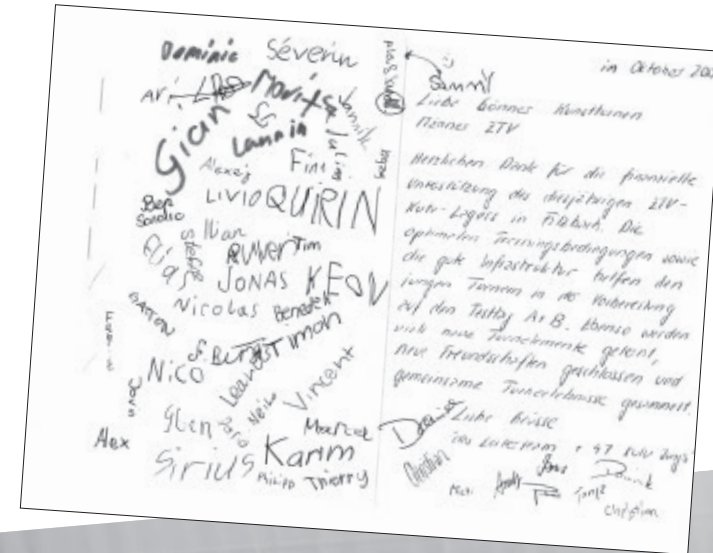 Dominic Séverin
Sammy
Ari Moritz Yannik
Gian Lannin Julian
Alexej Fini
LIVIO QUIRIN
Ben
Sandro Ilian
Elias Stefan RUVEN Tim
JONAS KEOV
GASTON Nicolas Benedek
Nico BURST TIMON
Leandro Vincent
Glen Neilo Marcel
Alex Sirius Karim
Philipp Thierry
im Oktober
Liebe Gönner Kunstturnen
Männer ZTV
Herzlichen Dank für die finanzielle
Unterstützung des diesjährigen ZTV-
Kutu-Lagers in Filzbach. Die
optimalen Trainingsbedingungen sowie
die gute Infrastruktur helfen den
jungen Turnern in der Vorbereitung
auf den Testtag A+B. Ebenso werden
viele neue Turnelemente gelernt,
neue Freundschaften geschlossen und
gemeinsame Turnerlebnisse gesammelt.
Liebe Grüsse
das Leiterteam + 47 Kutu Jungs
Christian Dominik
Christian